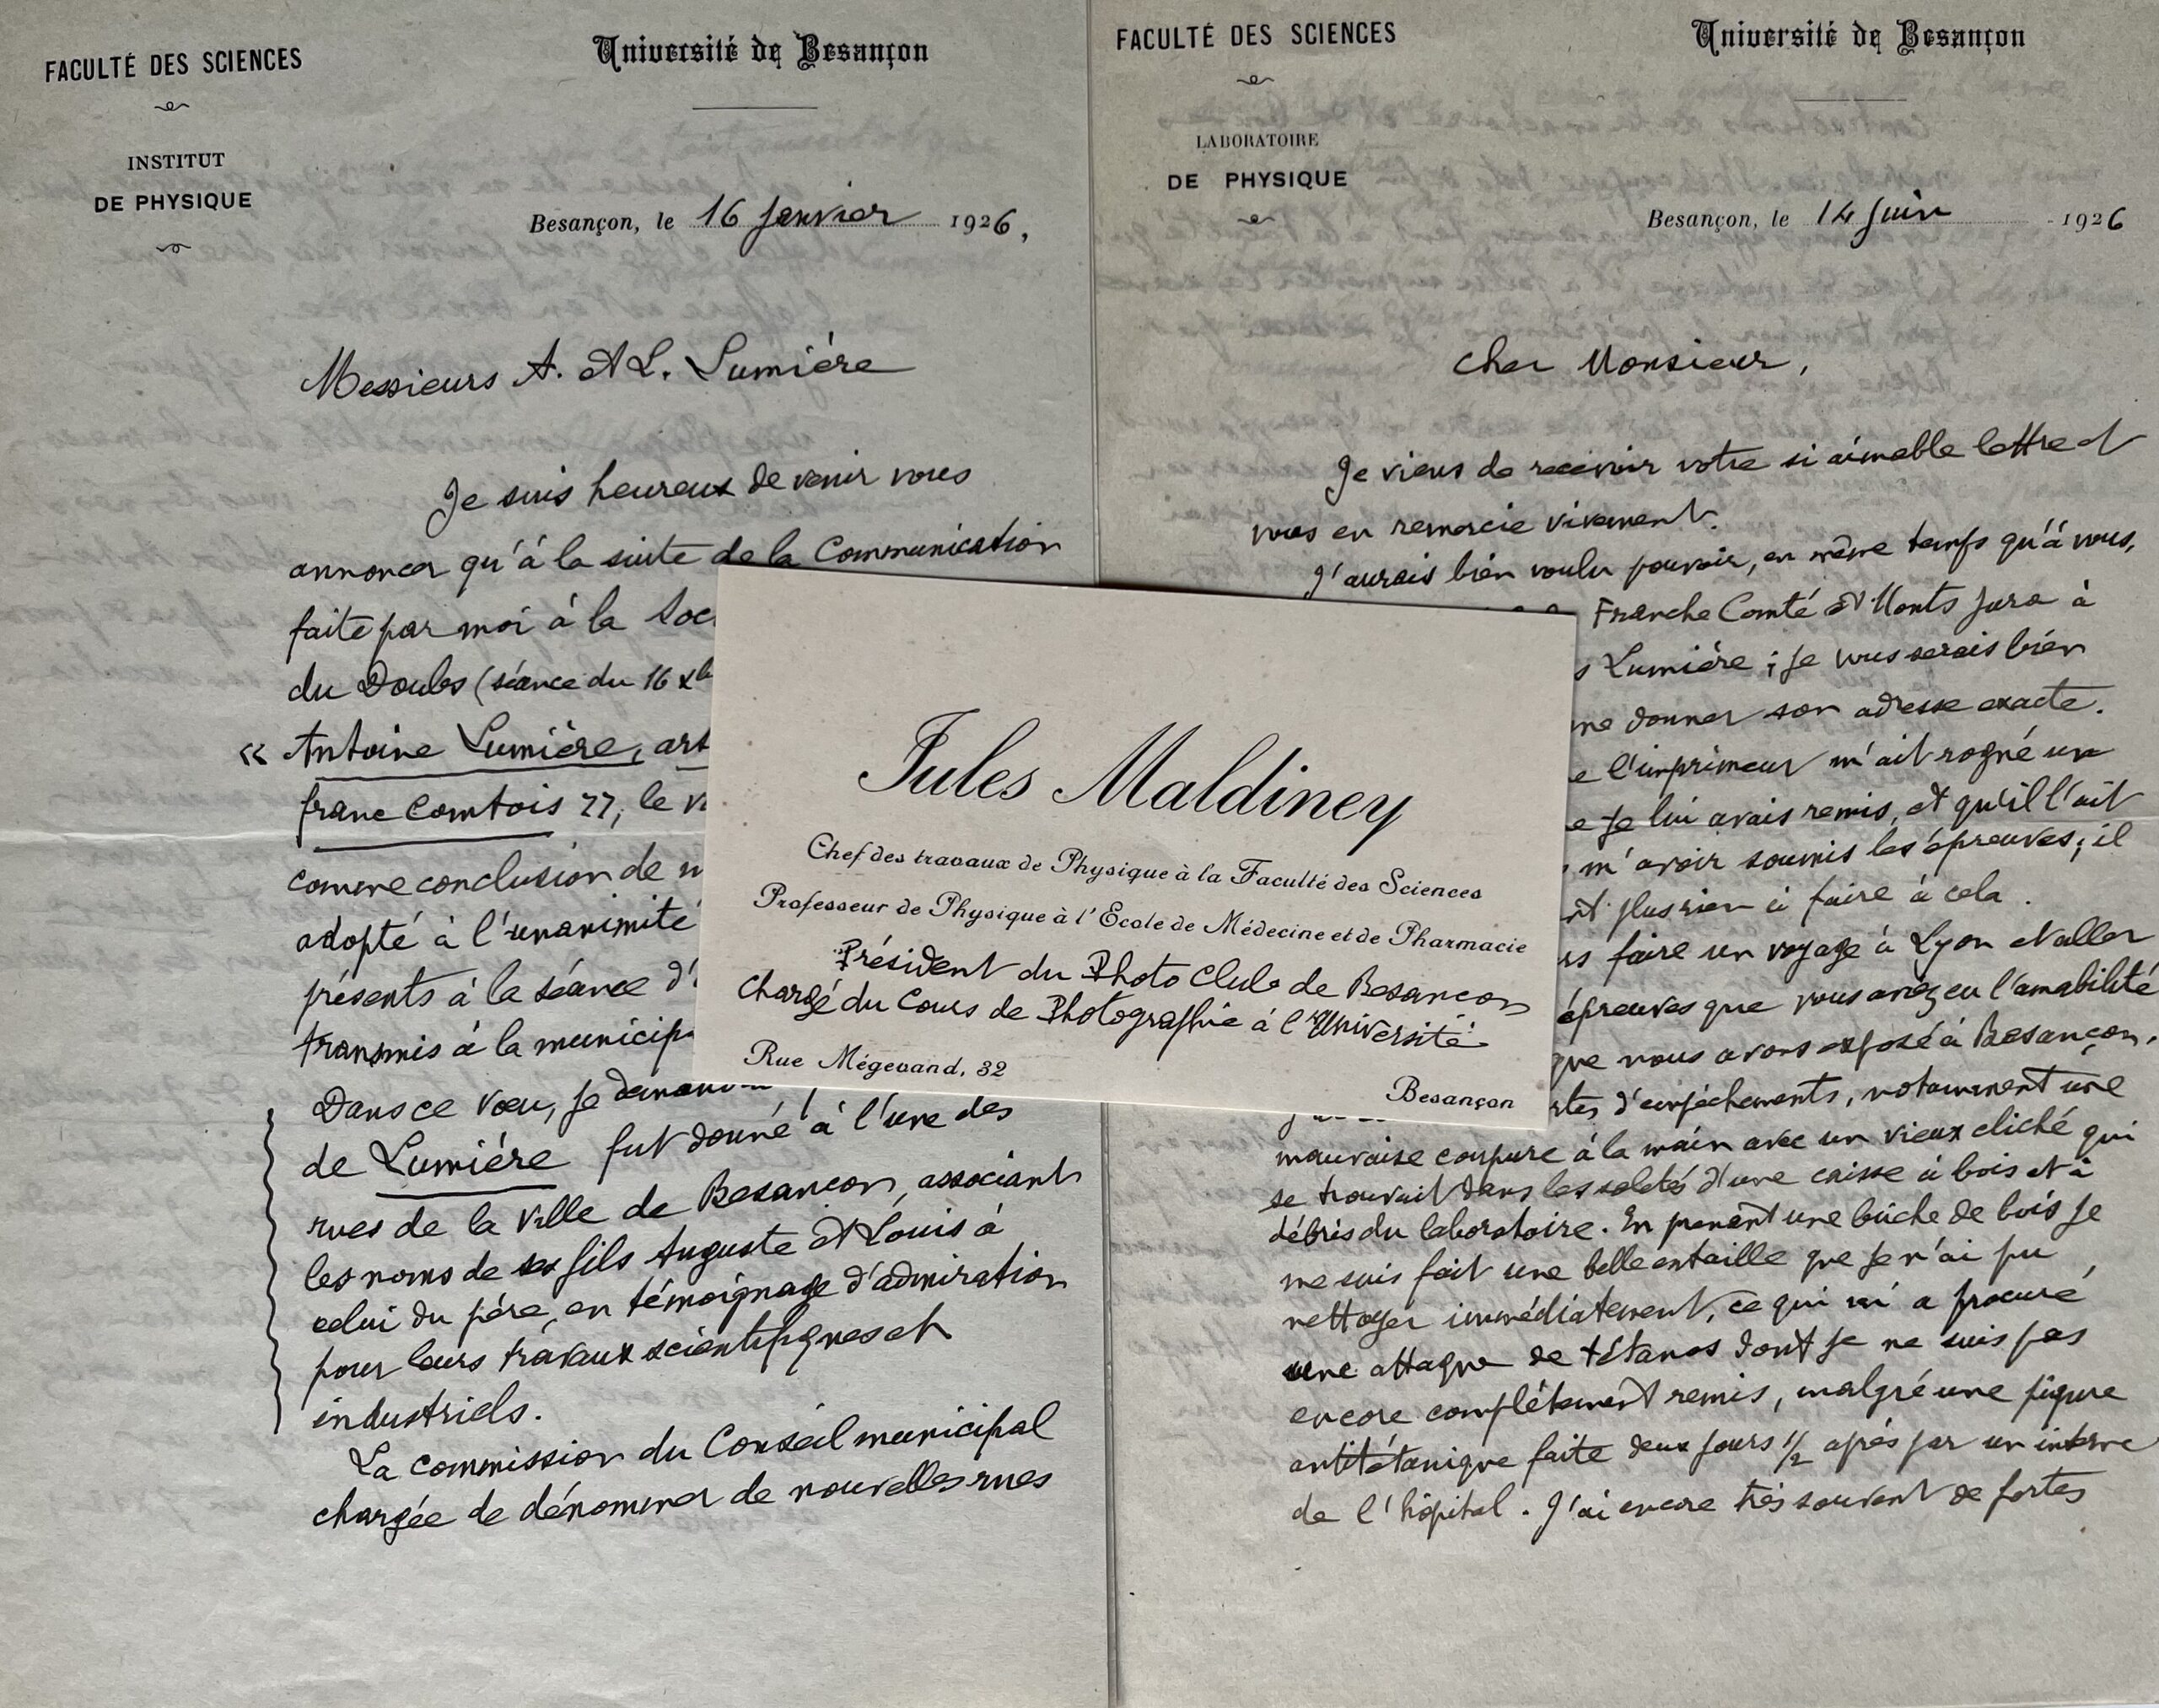 FACULTÉ DES SCIENCES
INSTITUT
DE PHYSIQUE
Université de Besançon
Besançon, le 16 Janvier 1926,
Messieurs A. et L. Lumière
Je suis heureux de venir vous
annoncer qu'à la suite de la Communication
faite par moi à la Soc
du Doubs (séance du 16 Xb
« Antoine Lumière, art
franc Comtois ", le v
comme conclusion de m
adopté à l'unanimité
présents à la séance d'
transmis à la municip
Dans ce vœu, je
de Lumière fut donné à l'une des
rues de la ville de Besançon, associant
les noms de ses fils Auguste et Louis à
celui du père, en témoignage d'admiration
pour leurs travaux scientifiques et
industriels.
La commission du Conseil municipal
chargée de dénommer de nouvelles rues
FACULTÉ DES SCIENCES
LABORATOIRE
DE PHYSIQUE
Université de Besançon
Besançon, le 14 Juin 1926
Cher Monsieur,
Je viens de recevoir votre si aimable lettre et
vous en remercie vivement.
J'aurais bien voulu pouvoir, en même temps qu'à vous,
Franche Comté et Monts Jura à
s Lumière ; je vous serais bien
me donner son adresse exacte.
e l'imprimeur m'ait rogné un
e je lui avais remis, et qu'il l'ait
m'avoir soumis les épreuves ; il
nt plus rien à faire à cela.
rs faire un voyage à Lyon et aller
épreuves que vous avez eu l'amabilité
que nous avons exposé à Besançon.
rtes d'empêchements, notamment une
mauvaise coupure à la main avec un vieux cliché qui
se trouvait dans les saletés d'une caisse à bois et à
débris du laboratoire. En prenant une bûche de bois je
me suis fait une belle entaille que je n'ai pu
nettoyer immédiatement, ce qui m'a procuré
une attaque de tétanos dont je ne suis pas
encore complètement remis, malgré une piqure
antitétanique faite deux jours 1/2 après par un interne
de l'hôpital. J'ai encore très souvent de fortes
Jules Maldiney
Chef des travaux de Physique à la Faculté des Sciences
Professeur de Physique à l'École de Médecine et de Pharmacie
Président du Photo Club de Besançon
Chargé du Cours de Photographie à l'Université
Rue Mégevand, 32
Besançon